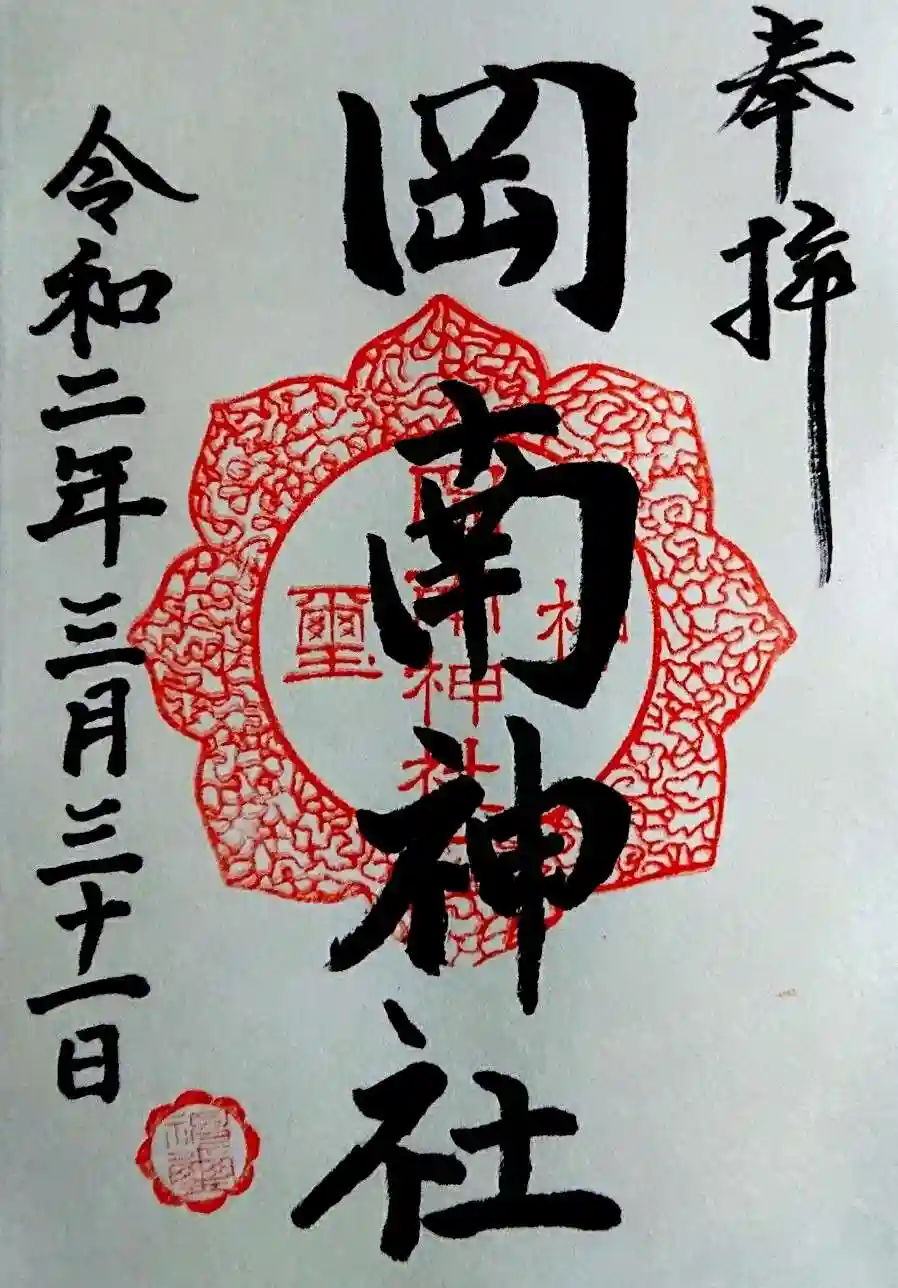 奉拝
岡南神社
令和二年三月三十一日
神
岡南神社
璽